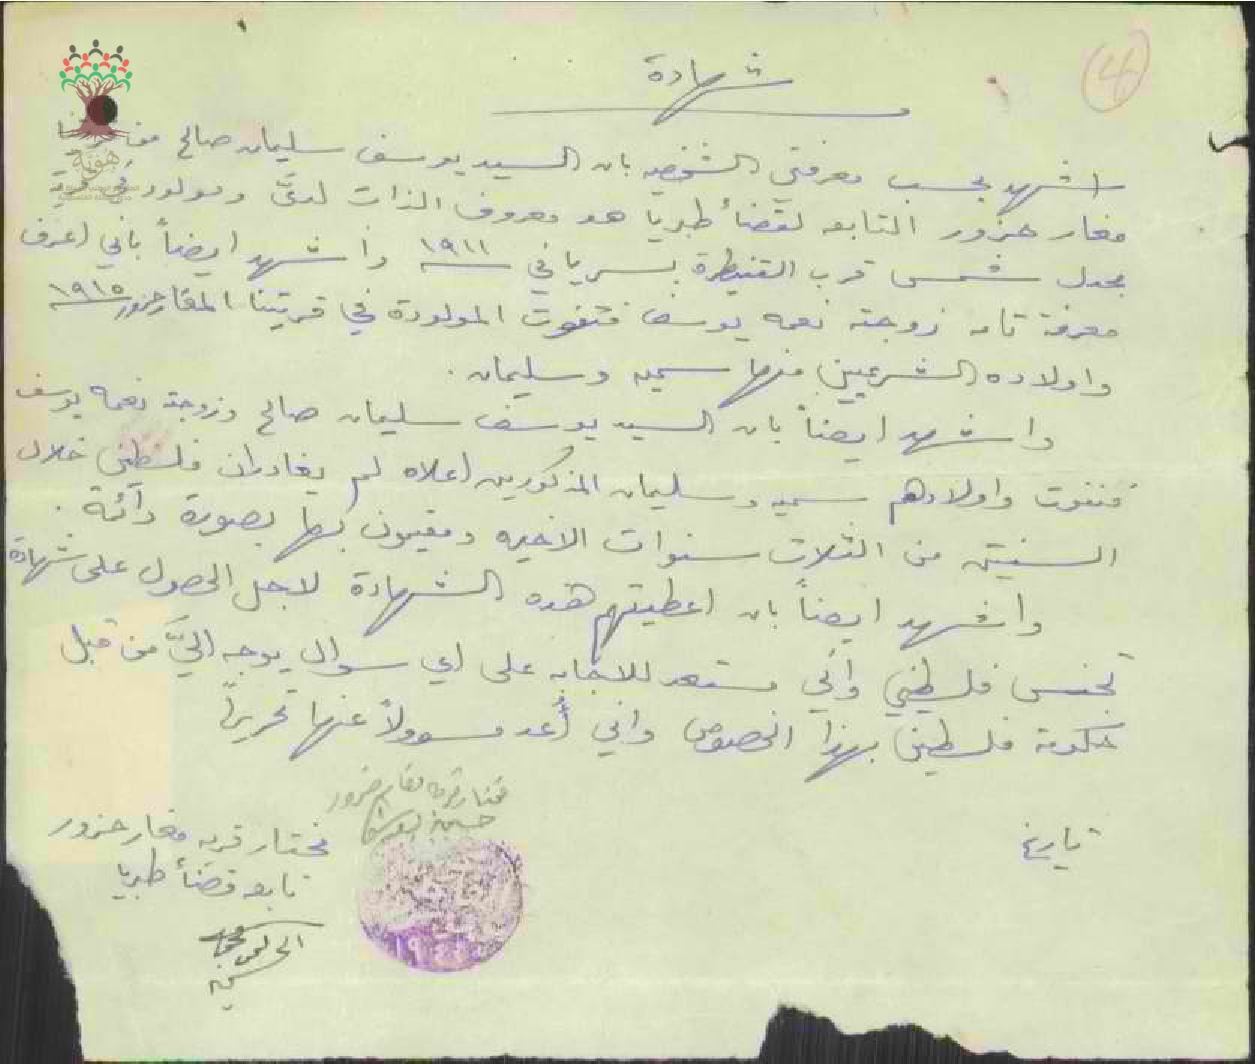 4
شهادة
هوية
اشهد بحسب معرفتي الشخصيه بان السيد يوسف سليمان صالح من
مغار حزور التابعه لقضأ طبريا هو معروف الذات لديَّ ومولود في قرية
مجدل شمس قرب القنيطرة بسريا في سنة ١٩١١ واشهد ايضاً باني اعرف
معرفة تامه زوجته نعمه يوسف فنفوت المولودة في قريتنا المغار حزور سنة ١٩١٥
واولاده الشرعيين منها سميه وسليمان .
واشهد ايضاً بان السيد يوسف سليمان صالح وزوجته نعمه يوسف
فنفوت واولادهم سميه وسليمان المذكورين اعلاه لم يغادران فلسطين خلال
السنتين من الثلاث سنوات الاخيره ومقيمون بها بصورة دآئمة .
واشهد ايضاً بان اعطيتهم هذه الشهادة لاجل الحصول على شهادة
تجنس فلسطيني وأني مستعد للاجابه على اي سوال يوجه اليَّ من قبل
حكومة فلسطين بهذا الخصوص واني أُعد مسوولاً عنها تحريراً
تاريخ
مختار قرية مغار حزور
حسين
مختار قريه مغار حزور
تابع قضأ طبريا